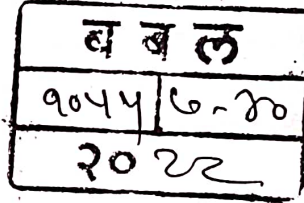 ब ब ल
१०५५ ७-४०
२०२२